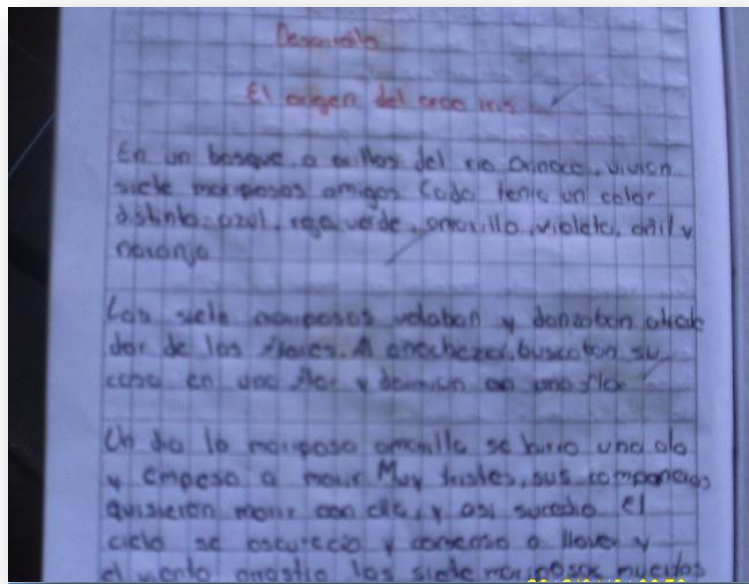 Desarrollo
El origen del arco iris
En un bosque a orillas del rio Orinoco, vivian
siete mariposas amigas Cada tenia un color
distinto: azul, roja verde, amarillo, violeta, añil y
naranja
Las siete mariposas volaban y danzaban alrede
dor de las flores. Al anochezer, buscaban su
casa en una flor y dormian en una flor
Un dia la mariposa amarilla se hirio una ala
y empeso a morir Muy tristes, sus compañeras
quisieron morir con ella, y asi sucedio el
cielo se oscurecio y comenso a llover y
el viento arrastro las siete mariposas muertas